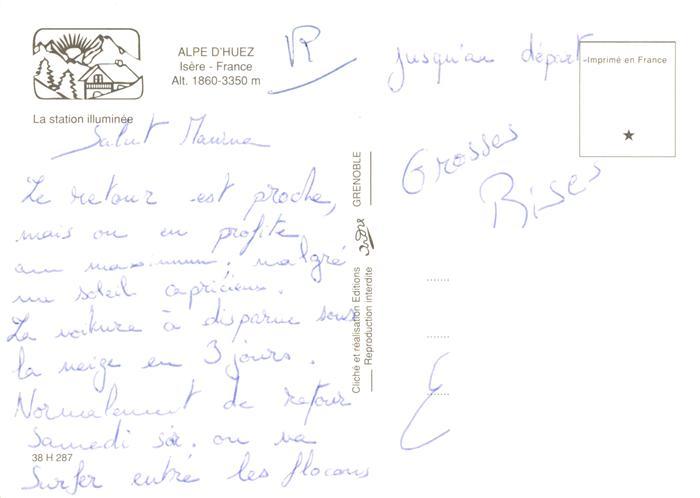 ALPE D'HUEZ
Isère - France
Alt. 1860-3350 m
La station illuminée
Salut
Le retour est proche,
mais on en profite
au maximum. malgré
un soleil capricieux.
La voiture à disparue sous
la neige en 3 jours.
Normalement de retour
Samedi soir. on va
surfer entre les flocons
38 H 287
Cliché et réalisation Editions
Reproduction interdite
GRENOBLE
jusqu'au départ
Grosses
Bises
Imprimé en France